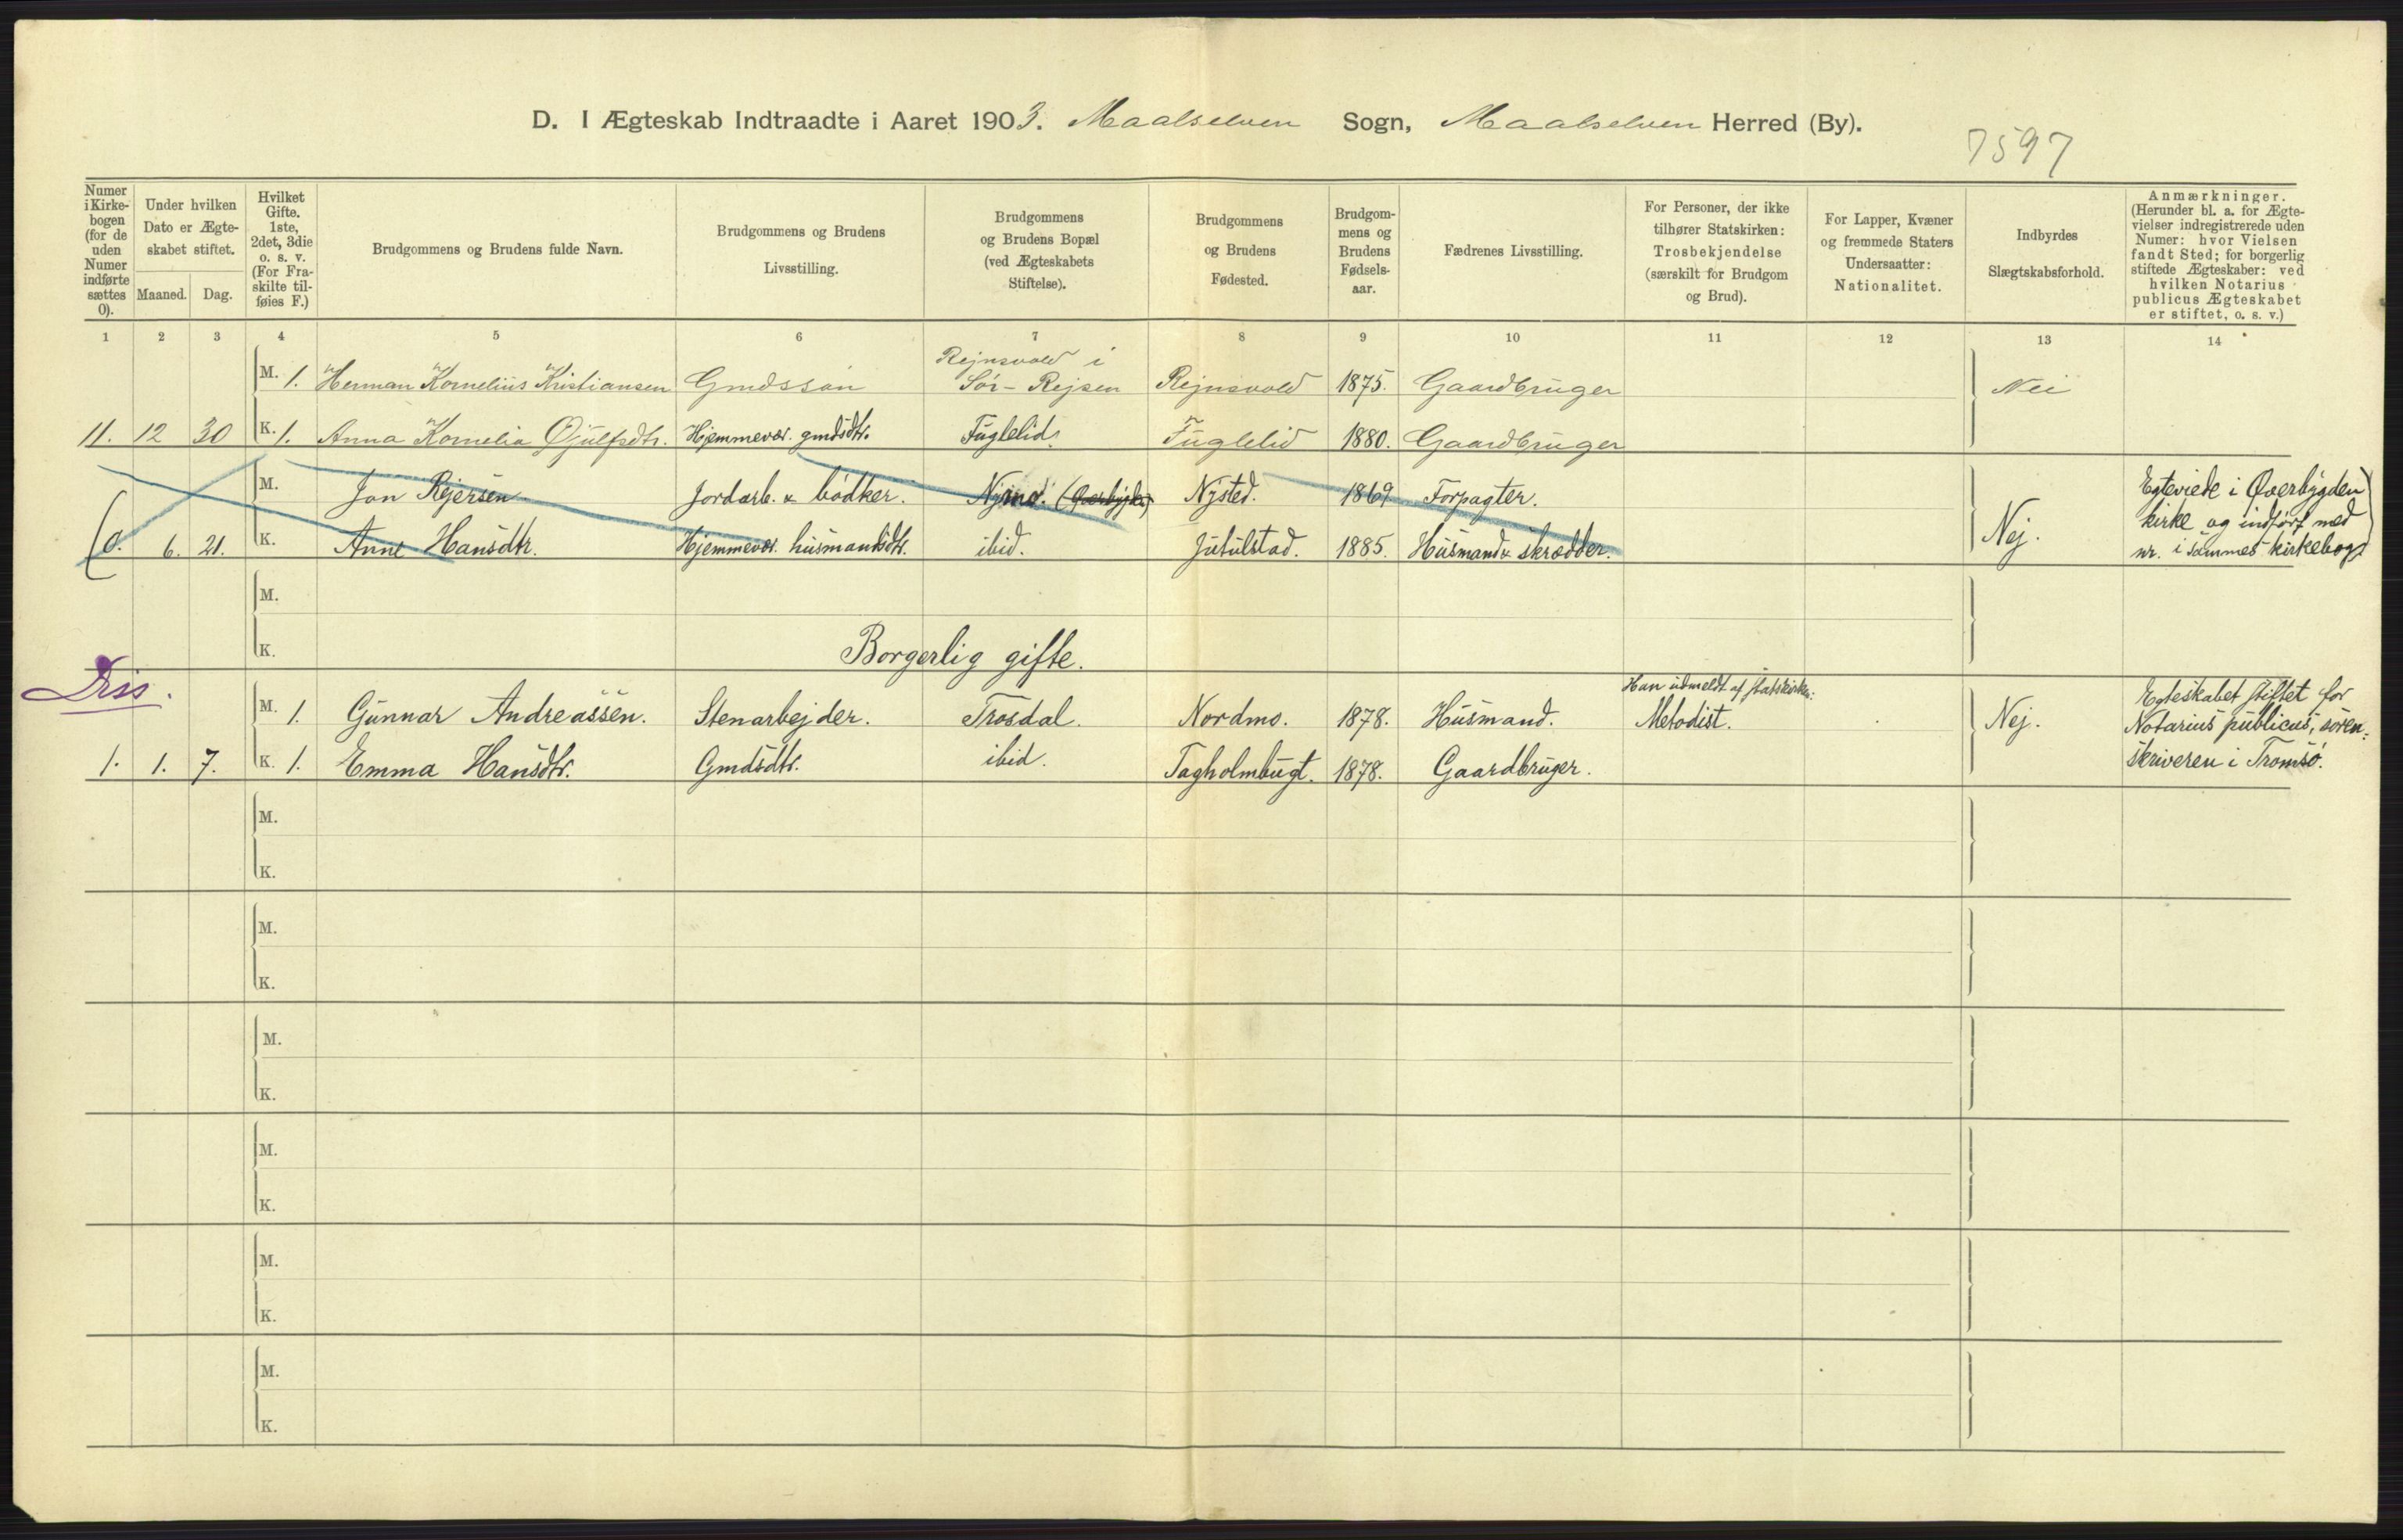 D. I Ægteskab Indtraadte i Aaret 1903. Maalselven Sogn, Maalselven Herred (By).
7597
Numer i Kirke-bogen (for de uden Numer indførte sættes 0).
Under hvilken Dato er Ægte-skabet stiftet.
Maaned. Dag.
Hvilket Gifte. 1ste, 2det, 3die o. s. v. (For Fra-skilte til-føies F.)
Brudgommens og Brudens fulde Navn.
Brudgommens og Brudens Livsstilling.
Brudgommens og Brudens Bopæl (ved Ægteskabets Stiftelse).
Brudgommens og Brudens Fødested.
Brudgom-mens og Brudens Fødsels-aar.
Fædrenes Livsstilling.
For Personer, der ikke tilhører Statskirken: Trosbekjendelse (særskilt for Brudgom og Brud).
For Lapper, Kvæner og fremmede Staters Undersaatter: Nationalitet.
Indbyrdes Slægtskabsforhold.
Anmærkninger. (Herunder bl. a. for Ægte-vielser indregistrerede uden Numer: hvor Vielsen fandt Sted; for borgerlig stiftede Ægteskaber: ved hvilken Notarius publicus Ægteskabet er stiftet, o. s. v.)
1 2 3 4 5 6 7 8 9 10 11 12 13 14
M. 1. Herman Kornelius Kristiansen Gmdssøn Rejnsvold i Sør-Rejsen Rejnsvold 1875. Gaardbruger Nei
11. 12 30 K. 1. Anna Kornelia Øjulfsdtr. Hjemmevær. gmdsdtr. Fuglelid. Fuglelid 1880. Gaardbruger
M. Jon Rejersen Jordarb. & bødker. Nymo. (Øverbygden) Nysted. 1869 Forpagter. Egteviede i Øverbygden
kirke og indført med
(0. 6. 21. K. Anne Hansdtr. Hjemmevær. husmandsdtr. ibid. Jutulstad. 1885. Husmand & skrædder. Nej. nr. i sammes kirkebog)
M.
K.
Borgerlig gifte.
Diss.
Han udmeldt af statskirken:
M. 1. Gunnar Andreassen. Stenarbejder. Trosdal. Nordmo. 1878. Husmand. Metodist. Nej. Egteskabet stiftet for
Notarius publicus, soren-
1. 1. 7. K. 1. Emma Hansdtr. Gmdsdtr. ibid. Tagholmbugt. 1878. Gaardbruger. skriveren i Tromsø.
M.
K.
M.
K.
M.
K.
M.
K.
M.
K.
M.
K.